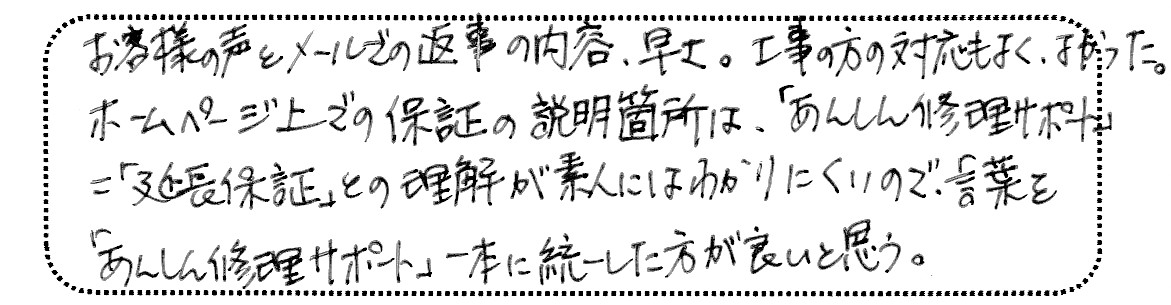 お客様の声とメールでの返事の内容、早さ。工事の方の対応もよく、よかった。
ホームページ上での保証の説明箇所は、「あんしん修理サポート」
=「延長保証」との理解が素人にはわかりにくいので、言葉を
「あんしん修理サポート」一本に統一した方が良いと思う。